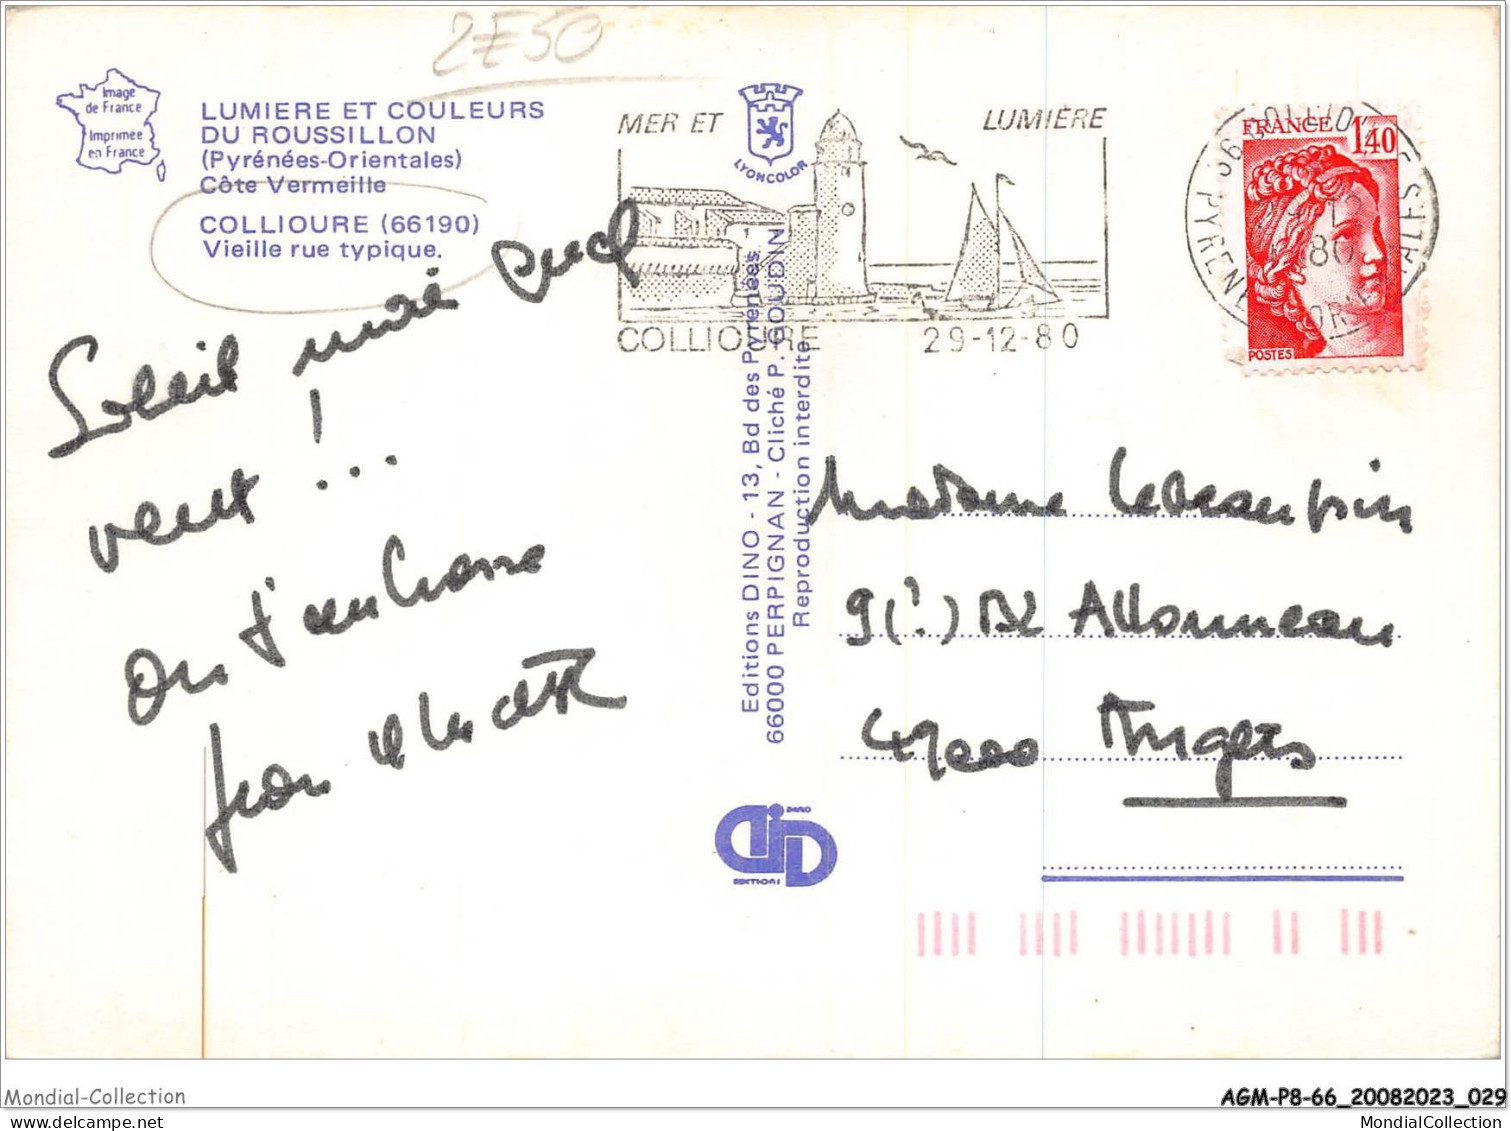 2F50
Image
de France
Imprimée
en France
LUMIERE ET COULEURS
DU ROUSSILLON
(Pyrénées-Orientales)
Côte Vermeille
COLLIOURE (66190)
Vieille rue typique.
MER ET LUMIÈRE
LYONCOLOR
COLLIOURE 29-12-80
FRANCE 1,40
POSTES
Soleil mais quel
vent !...
On t'embrasse
Jean
Editions DINO - 13, Bd des Pyrénées
66000 PERPIGNAN - Cliché P. GOUDIN
Reproduction interdite
DINO
EDITIONS
Madame
9 (?) Allonneau
49000 Angers
Mondial-Collection
AGM-P8-66_20082023_029
www.delcampe.net
MondialCollection